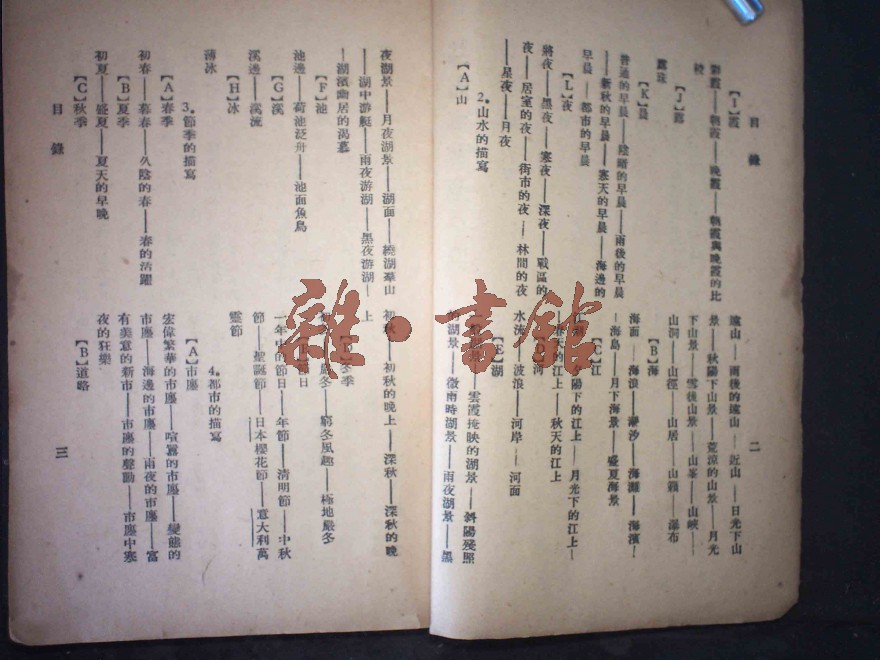 目錄
二
【I】霞
彩霞——朝霞——晚霞——朝霞與晚霞的比
較
【J】露
露珠
【K】晨
普通的早晨——陰晴的早晨——雨後的早晨
——新秋的早晨——寒天的早晨——海邊的
早晨——都市的早晨
【L】夜
將夜——黑夜——寒夜——深夜——戰區的
夜——居室的夜——街市的夜——林間的夜
——星夜——月夜
2.山水的描寫
【A】山
遠山——雨後的遠山——近山——日光下山
景——秋陽下山景——荒涼的山景——月光
下山景——雪後山景——山峯——山峽——
山洞——山徑——山居——山巔——瀑布
【B】海
海面——海浪——潮汐——海灘——海濱——
——海島——月下海景——盛夏海景
【C】江
夕陽下的江上——月光下的江上——
天的江上——秋天的江上
河
水流——波浪——河岸——河面
【E】湖
雲霞掩映的湖景——斜陽殘照
的湖景——微雨時湖景——雨夜湖景——黑
夜湖景——月夜湖景——湖面——繞湖羣山
——湖中游艇——雨夜游湖——黑夜游湖——
——湖濱幽居的渴慕
【F】池
池邊——荷池泛舟——池面魚鳥
【G】溪
溪邊——溪流
【H】冰
薄冰
3.節季的描寫
【A】春季
初春——暮春——久陰的春——春的活躍
【B】夏季
初夏——盛夏——夏天的早晚
【C】秋季
初秋——初秋的晚上——深秋——深秋的晚
上
冬季
嚴冬——窮冬風趣——極地嚴冬
節日
一年中的節日——年節——清明節——中秋
節——聖誕節——日本櫻花節——意大利萬
靈節
4.都市的描寫
【A】市廛
宏偉繁華的市廛——喧囂的市廛——變態的
市廛——海邊的市廛——雨夜的市廛——富
有美意的新市——市廛的聲動——市廛中寒
夜的狂樂
【B】道路
目錄
三
雜·書館